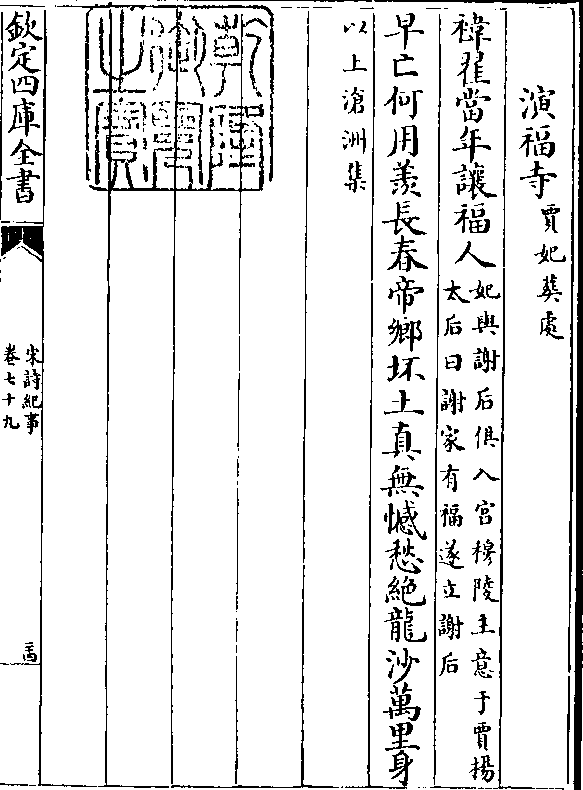 演福寺賈妃葬處
褘翟當年讓福人妃與謝后俱入宮穆陵主意于賈揚
太后曰謝家有福遂立謝后
早亡何用羨長春帝鄉坏土真無憾愁絕龍沙萬里身
以上滄洲集
乾隆御覽之寶
欽定四庫全書
宋詩紀事
卷七十九